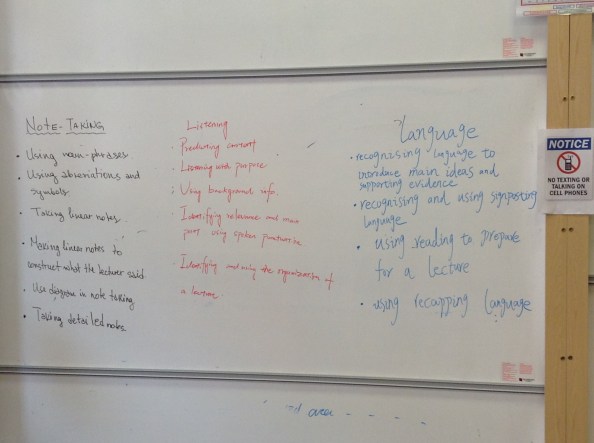 NOTE-TAKING
• Using noun-phrases
• Using abbreviations and
symbols
• Taking linear notes
• Making linear notes to
construct what the lecturer said
• Use diagram in note taking
• Taking detailed notes
Listening
• Predicting content
• Listening with purpose
• Using background info.
• Identifying relevance and main
part using
Identifying and using the organization of
a lecture
Language
• recognising language to
introduce main ideas and
supporting evidence
• recognising and using signposting
language
• using reading to prepare
for a lecture
• using recapping language
area - - - -
NOTICE
NO TEXTING OR
TALKING ON
CELL PHONES